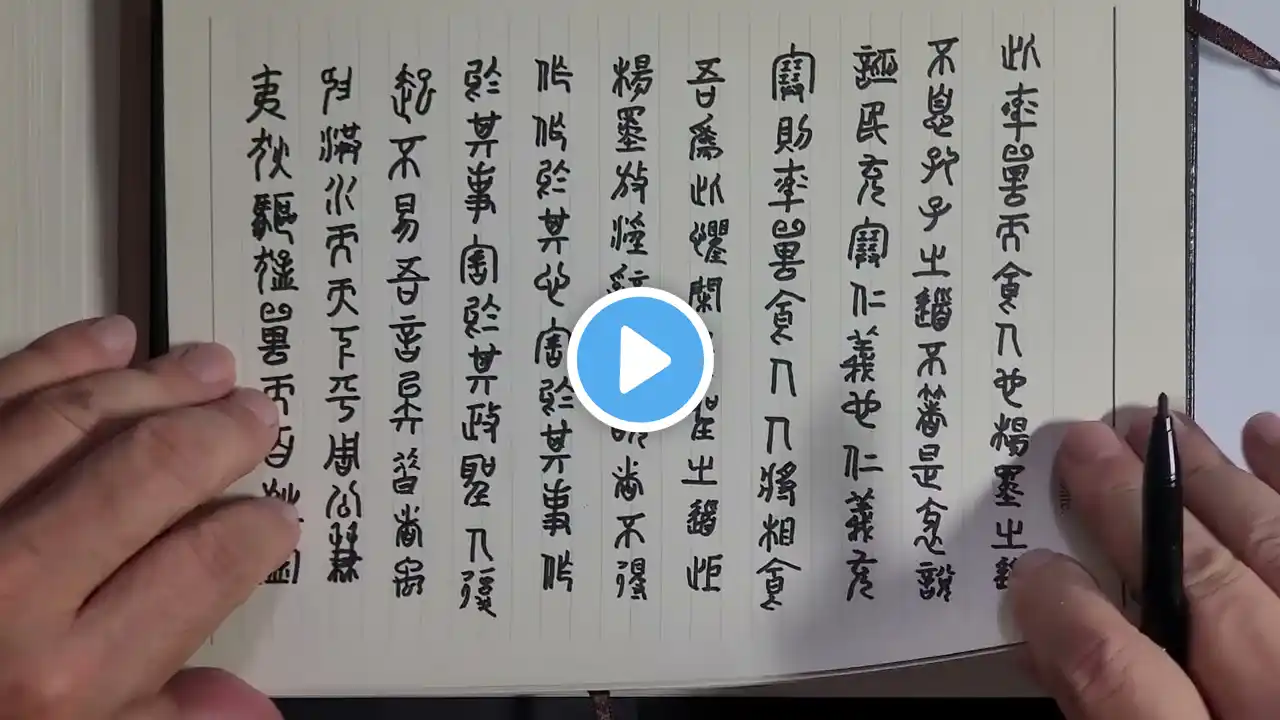 此率獸而食人也楊墨之道
不息孔子之道不著是邪說
誣民充塞仁義也仁義充
塞則率獸食人人將相食
吾爲此懼閑之道距
楊墨放淫辭說者不得
作作於其心害於其事作
於其事害於其政聖人復
起不易吾言矣昔者禹
抑洪水而天下平周公兼
夷狄驅猛獸而百姓寧